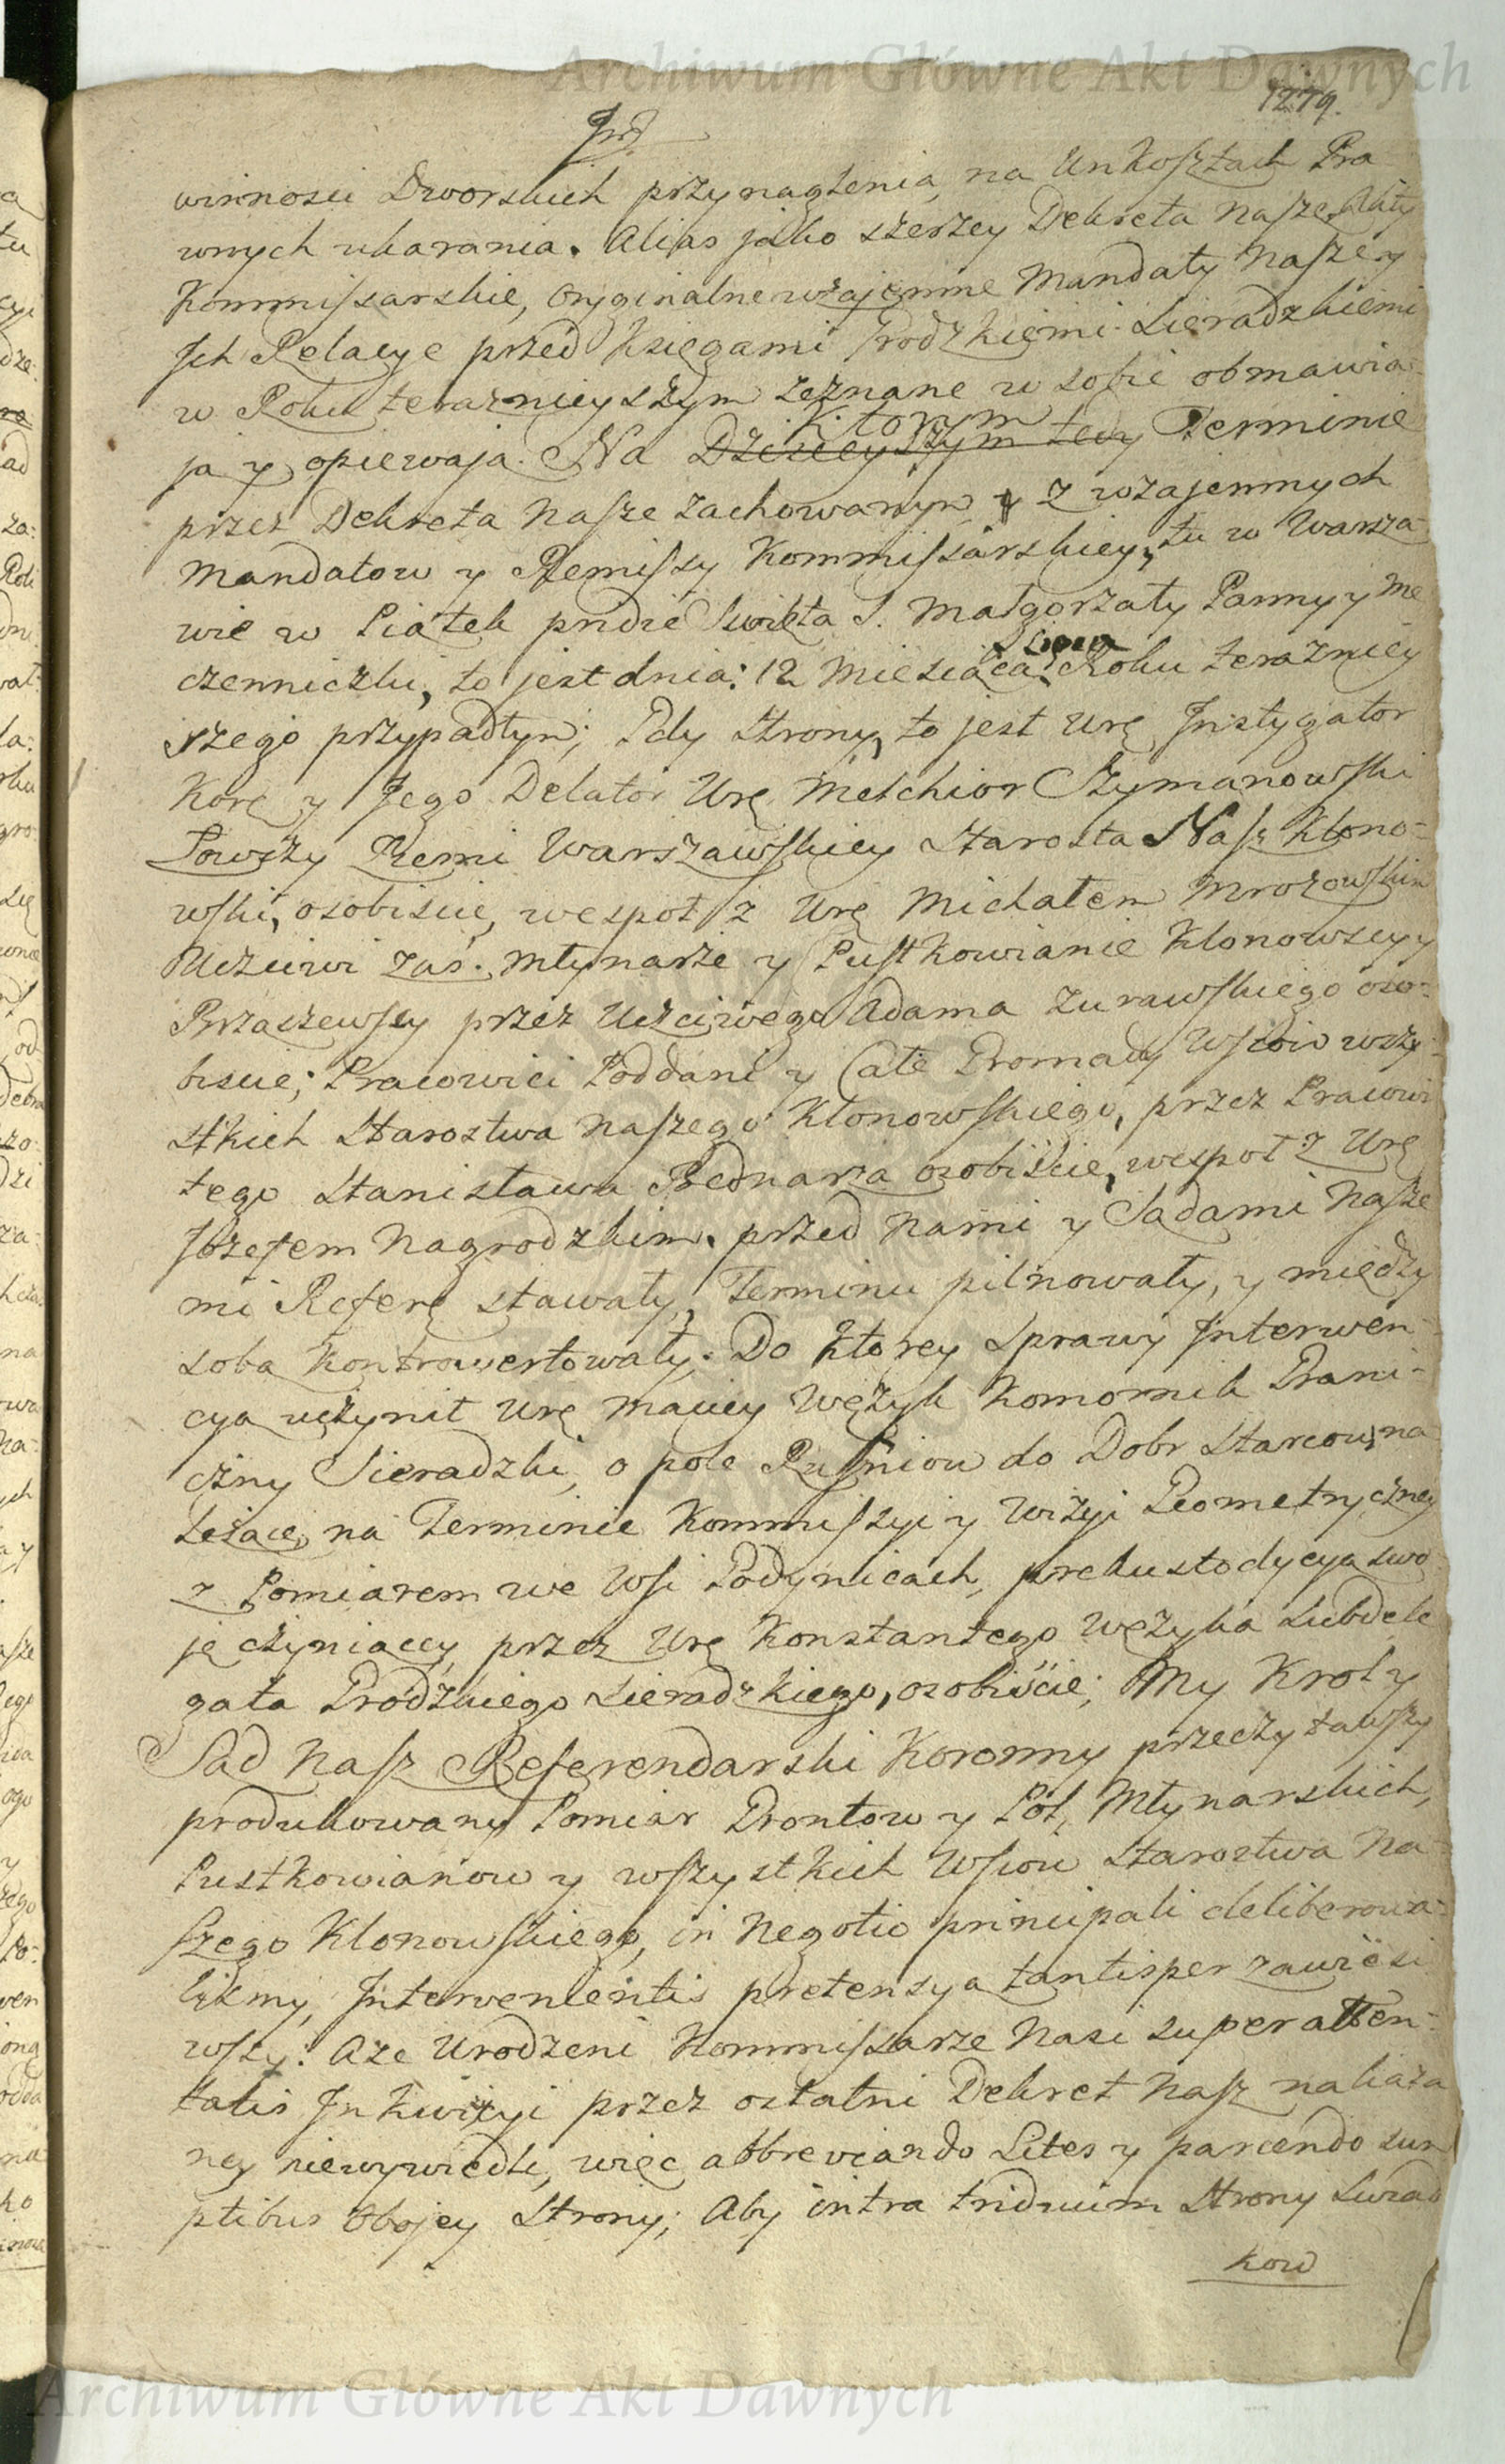 Archiwum Główne Akt Dawnych
1279.
winnosci Dworskich przynaglenia, na Unkosztach Pra
wnych ukarania. Alias jako szerzey Dekreta Nasze, Akty
Kommissarskie, Oryginalne wzajemne Mandaty Nasze y
Jch Relacye przed Księgami Grodzkiemi Sieradzkiemi
w Roku teraznieyszym zeznane w sobie obmawia-
ja y opiewaja. Na Dzisieyszym tedy Ktorym Terminie
przez Dekreta Nasze zachowanym y z wzajemnych
Mandatow y Remissy Kommissarskiey, tu w Warsza-
wie w Piątek pridie Swięta S. Małgorzaty Panny y Mę
czenniczki, to jest dnia: 12 Miesiąca Lipca Roku terazniey
szego przypadłym; Gdy Strony, to jest Urę Jnstygator
Korę y Jego Delator Urę Melchior Szymanowski
Łowczy Ziemi Warszawskiey Starosta Nasz Klono-
wski, osobiscie, wespoł z Urę Michałem Mrozowskim
Uczciwi zas. Młynarze y Pustkowianie Klonowscy y
Brzaszewscy przez Uczciwego Adama Zurawskiego oso-
biscie; Pracowici Poddani y Całe Gromady Wsiow wszy-
stkich Starostwa Naszego Klonowskiego, przez Pracowi
tego Stanisława Bednarza osobiście, wespoł z Urę
Jozefem Nagrodzkim. przed Nami y Sadami Nasze
mi Referę stawały, Terminu pilnowały, y między
soba kontrowertowały. Do Ktorey Sprawy Jnterwen-
cya uczynił Urę Maciey Wężyk Komornik Grani-
czny Sieradzki, o pole Rusniow do Dobr Starcow, na
leżace, na Terminie Kommissyi y Wizyi Geometryczney
z Pomiarem we Wsi Godynicach, prekustodycya swo-
ję czyniący, przez Urę Konstantego Wężyka Subdele
gata Grodzkiego Sieradzkiego, osobiście; My Krol y
Sad Nasz Referendarski Koronny przeczytawszy
produkowany Pomiar Grontow y Pol, Młynarskich,
Pustkowianow y wszystkich Wsiow Starostwa Na-
szego Klonowskiego, in Negotio principali deliberowa-
lismy, Jntervenientis pretensya tantisper zawiesi
wszy: Aże Urodzeni Kommissarze Nasi super atten-
tatis Jnkwizyi przez ostatni Dekret Nasz nakaza
ney niewywiedli, więc abbreviando Lites y parcendo sum
ptibus Obojey Strony; Aby intra triduum Strony Swiad
kow
Archiwum Główne Akt Dawnych